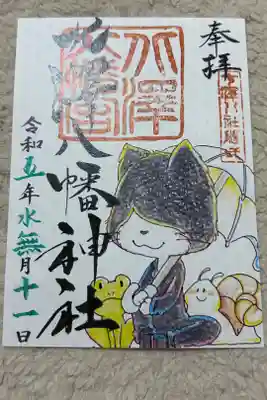 奉拝
北澤八幡神社
令和五年水無月十一日